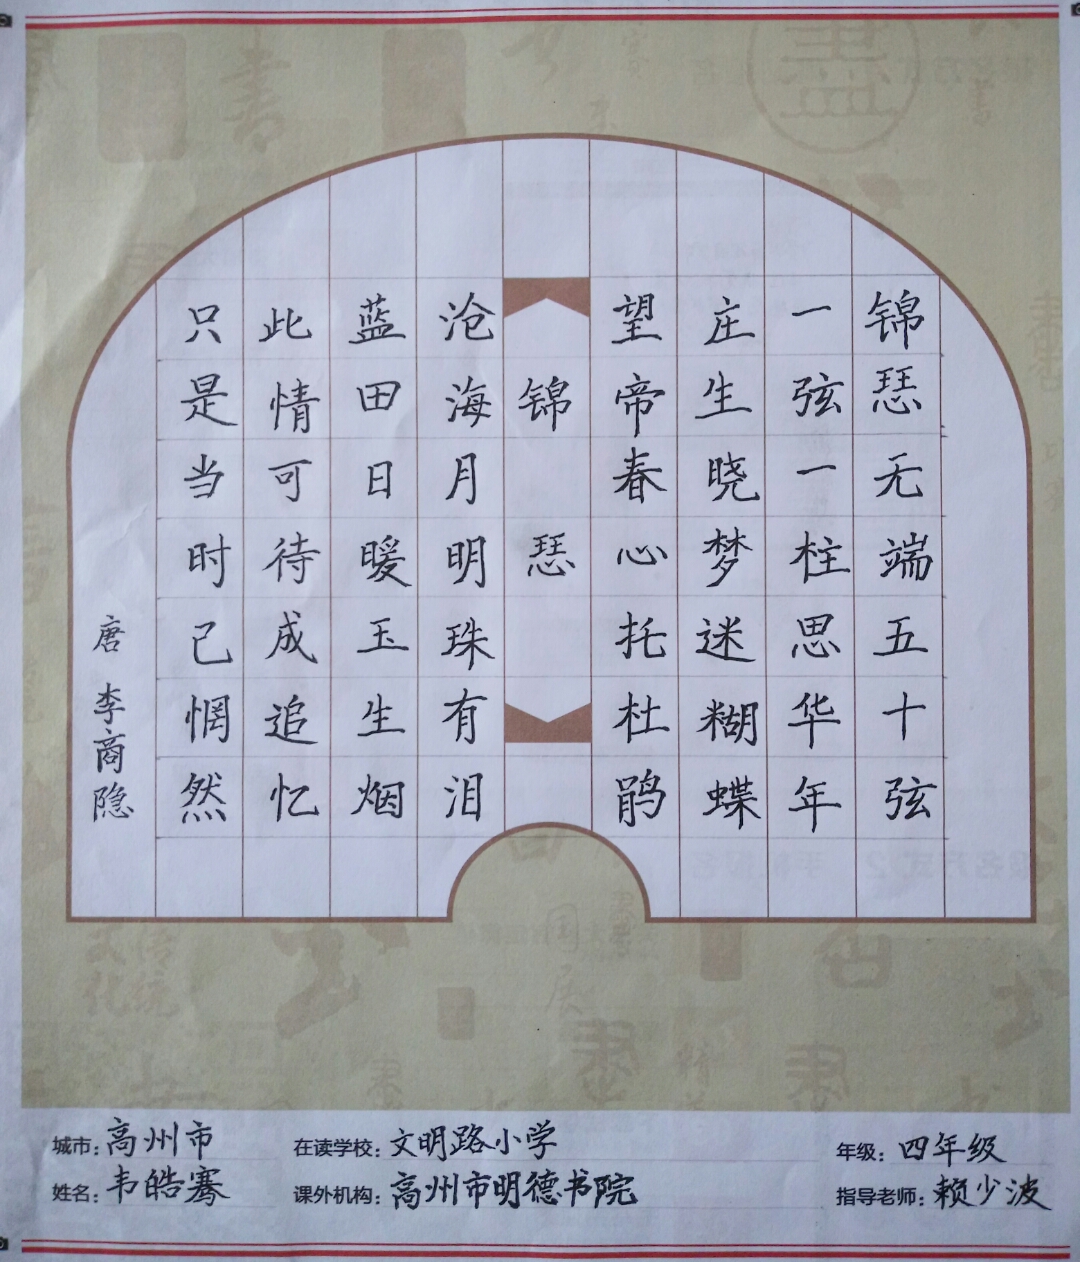 锦瑟无端五十弦
一弦一柱思华年
庄生晓梦迷糊蝶
望帝春心托杜鹃
锦瑟
沧海月明珠有泪
蓝田日暖玉生烟
此情可待成追忆
只是当时已惘然
唐 李商隐
城市：高州市
在读学校：文明路小学
年级：四年级
姓名：韦皓骞
课外机构：高州市明德书院
指导老师：赖少波